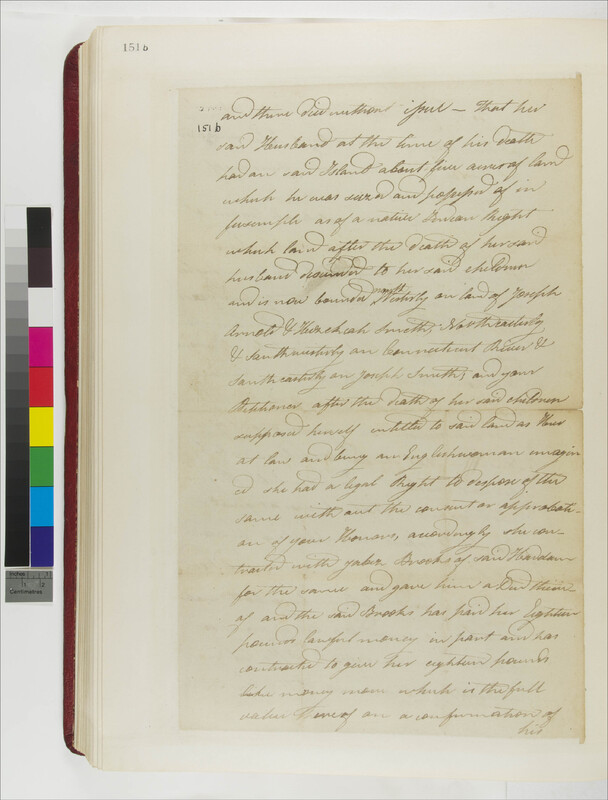 151b
151b
and there died without issue — that her
said Husband at the time of his death
had on said Island about five acres of land
which he was seized and possessed of in
fee simple as of a native Indian Right
which land after the death of her said
husband descended to her said children
and is now bounded Westerly on land of Joseph
Arnold & Hezekiah Smith, Northeasterly
& Southwesterly on Connecticut River &
Southeasterly on Joseph Smith, and your
Petitioner after the death of her said children
supposed herself intitled to said land as Heir
at law and being an Englishwoman imagin
ed she had a legal Right to dispose of the
same with out the consent or approbati-
on of your Honours, accordingly she con-
tracted with Jabez Brooks of said Haddam
for the same and gave him a Deed there
of and the said Brooks has paid her Eighteen
pounds lawful money in part and has
contracted to give her eighteen pounds
like money more which is the full
value thereof on a confirmation of
his
Inches
Centimetres